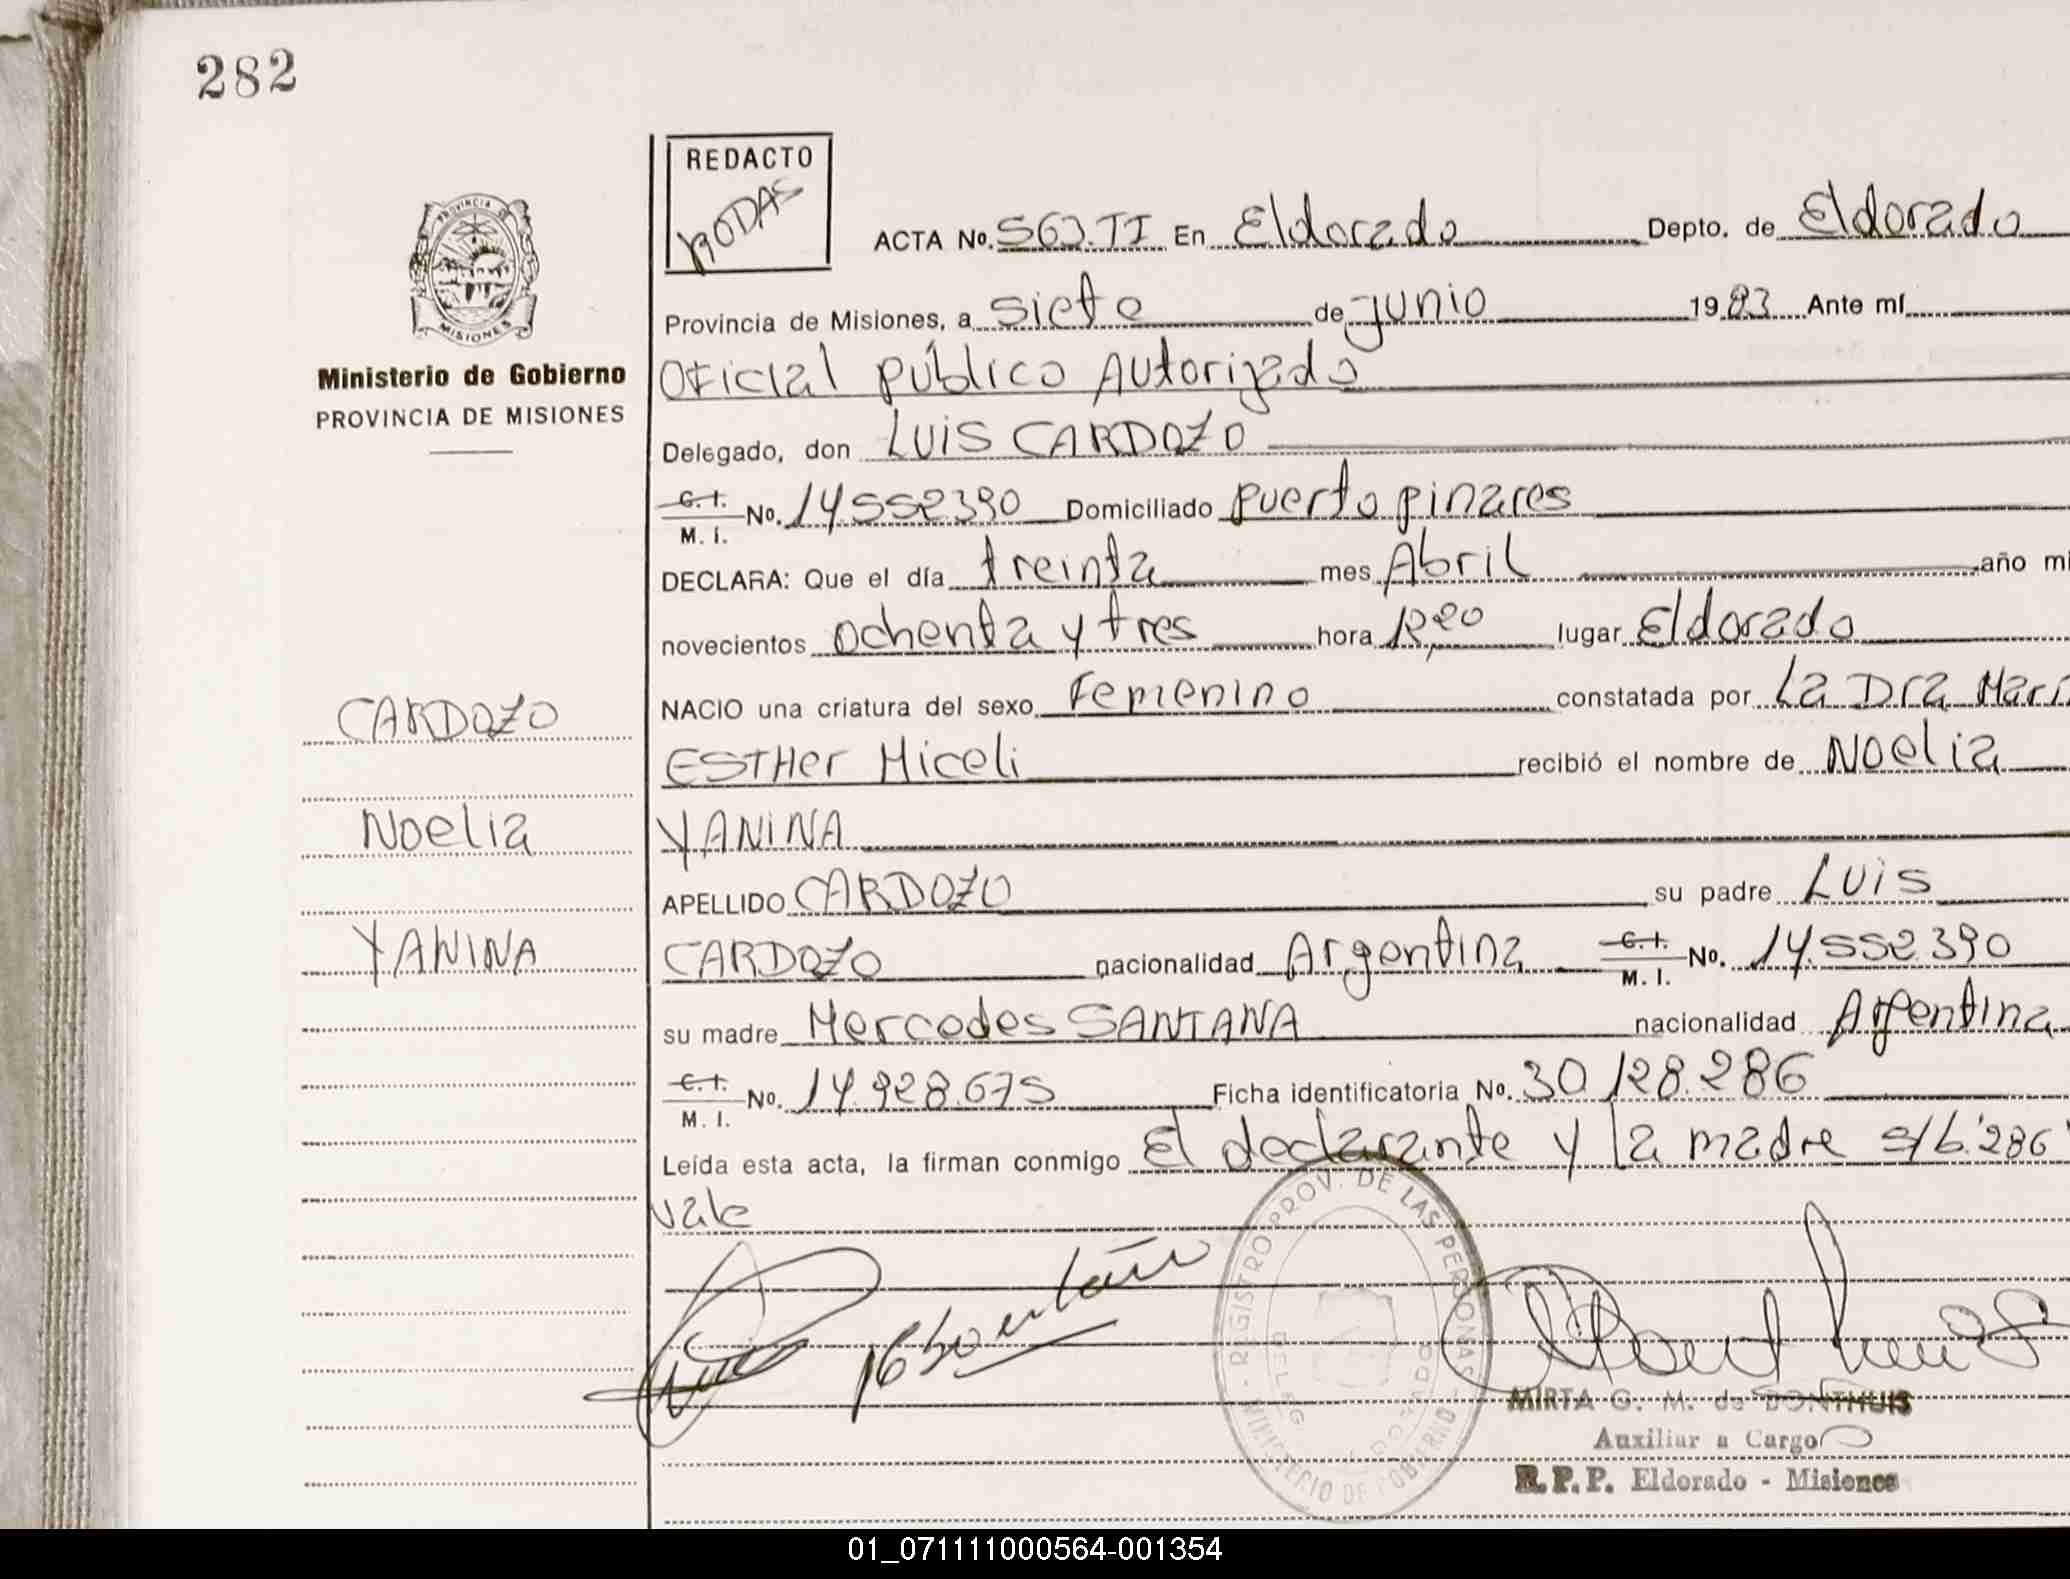 282
REDACTO
RODAS
PROVINCIA DE
MISIONES
Ministerio de Gobierno
PROVINCIA DE MISIONES
ACTA No. 563.TI En Eldorado Depto. de Eldorado
Provincia de Misiones, a siete de junio 1983 Ante mí
Oficial público Autorizado
Delegado, don LUIS CARDOZO
C.I. M. I. No. 14.552390 Domiciliado puerto pinares
DECLARA: Que el día treinta mes Abril año mi
novecientos ochenta y tres hora lugar Eldorado
CARDOZO
NACIO una criatura del sexo Femenino constatada por La Dra Marí
ESTHer Miceli recibió el nombre de Noelia
Noelia
YANINA
APELLIDO CARDOZO su padre Luis
YANINA
CARDOZO nacionalidad Argentina C.I. M. I. No. 14.552.390
su madre Mercedes SANTANA nacionalidad Argentina
C.I. M. I. No. 14.928.675 Ficha identificatoria No. 30.128.286
Leída esta acta, la firman conmigo El declarante y la madre s/b.'286'
vale
REGISTRO PROV. DE LAS PERSONAS
MINISTERIO DE GOBIERNO
MIRTA G. M. de DONTHUIS
Auxiliar a Cargo
R.P.P. Eldorado - Misiones
01_071111000564-001354